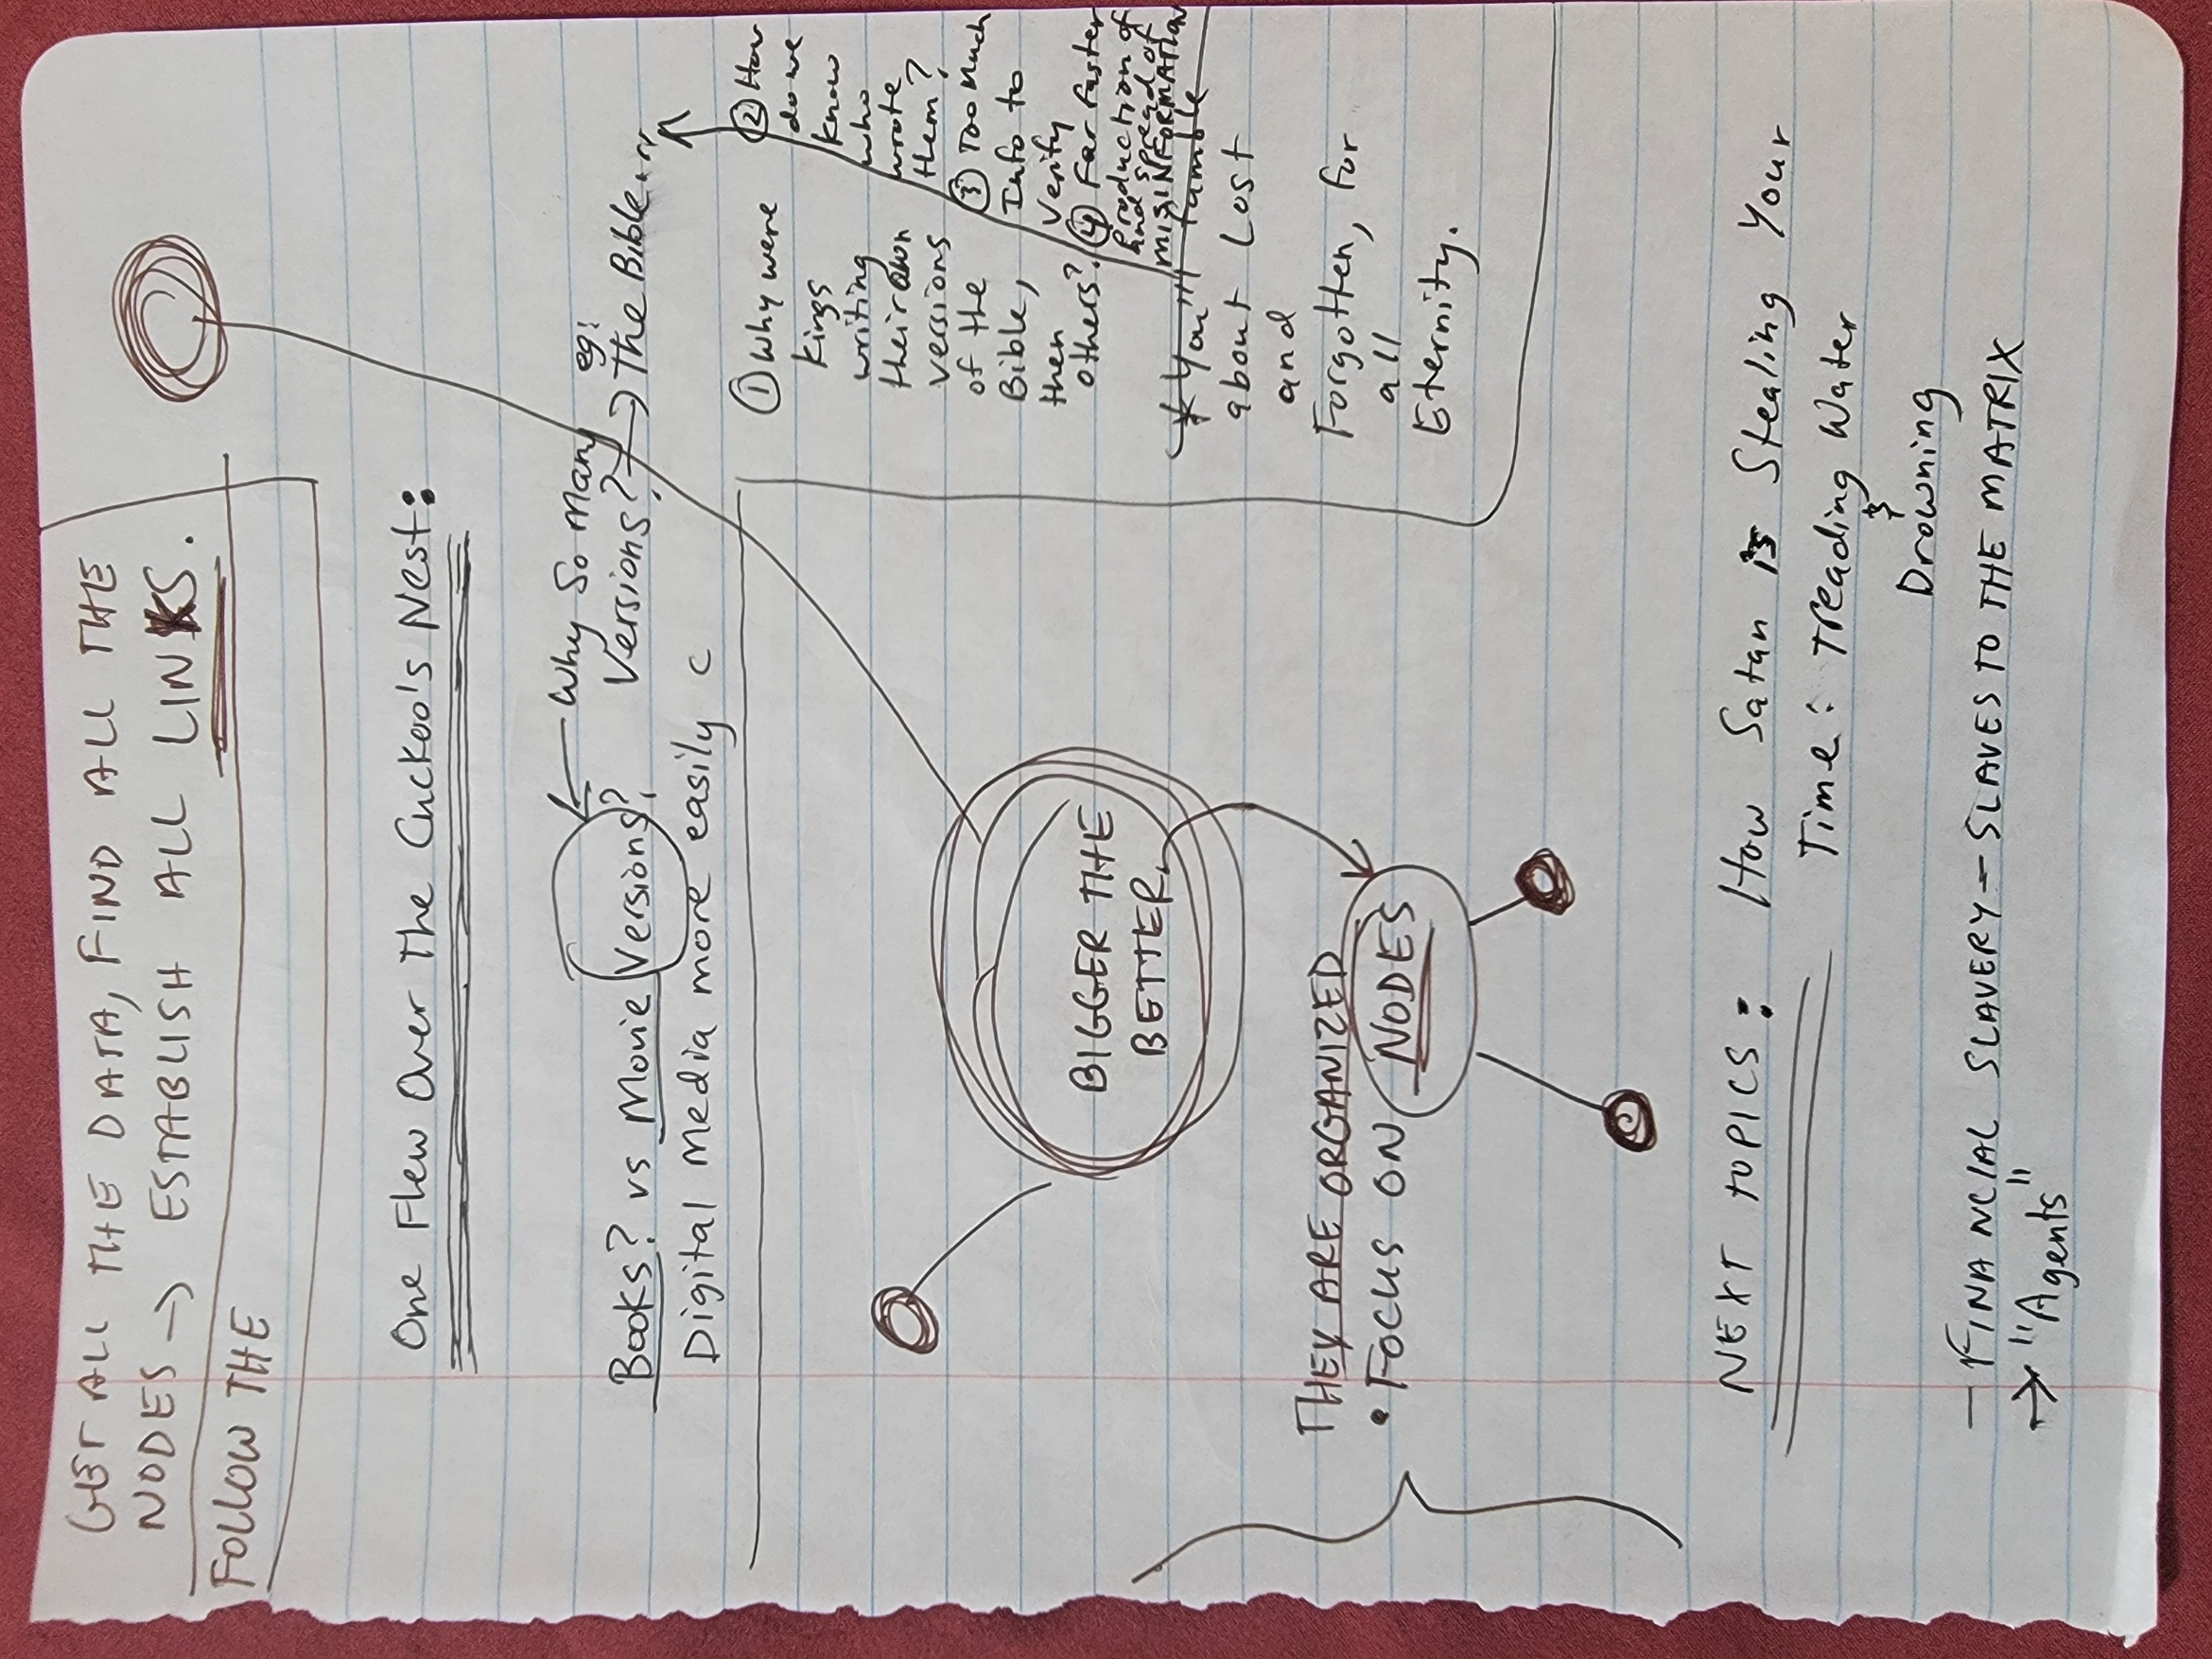 GET ALL THE DATA, FIND ALL THE
NODES → ESTABLISH ALL LINKS.
FOLLOW THE
One Flew Over The Cuckoo's Nest:
Books? vs Movie Versions?
Digital Media more easily c
← Why So Many
Versions? →
eg:
The Bible...
① Why were
kings
writing
their own
versions
of the
Bible,
then
others?
② How
do we
know
who
wrote
them?
③ Too Much
Info to
Verify
④ Far faster
production of
and spread of
MISINFORMATION
* You'll tumble
about Lost
and
Forgotten, for
all
Eternity.
BIGGER THE
BETTER.
THEY ARE ORGANIZED
• FOCUS ON NODES
NEXT TOPICS: How Satan is Stealing Your
Time: Treading Water
&
Drowning
– FINANCIAL SLAVERY – SLAVES TO THE MATRIX
→ "Agents"